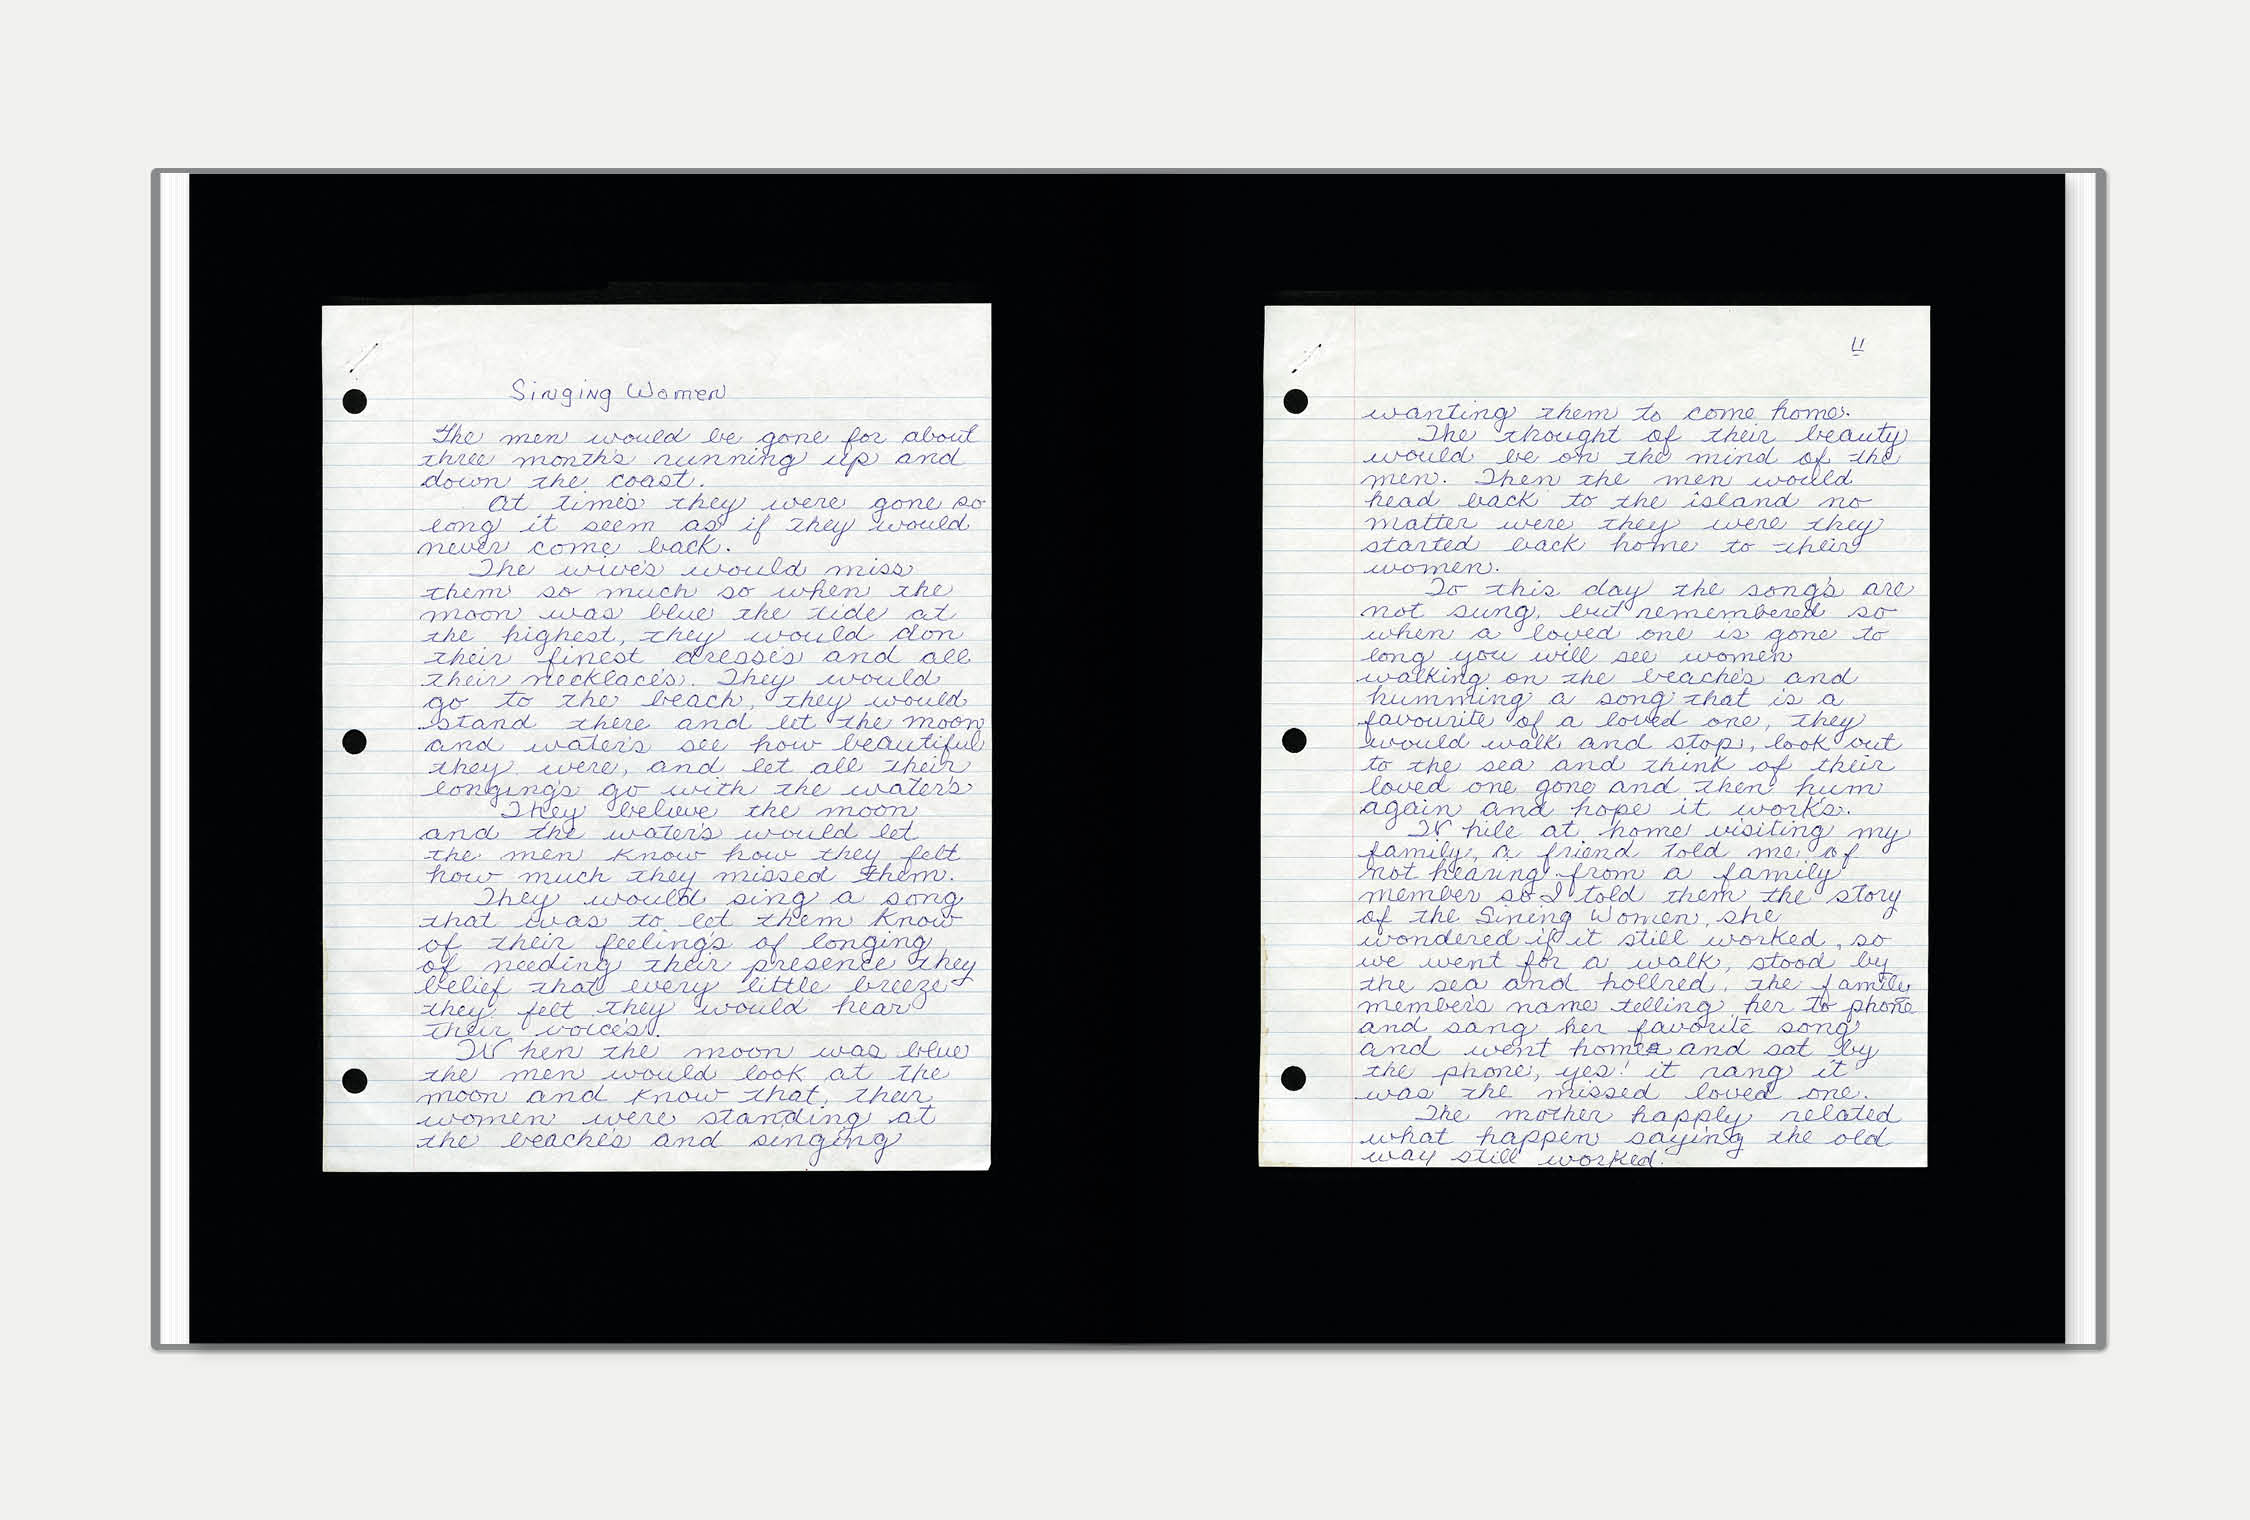 Singing Women
The men would be gone for about
three month's running up and
down the coast.
At time's they were gone so
long it seem as if they would
never come back.
The wive's would miss
them so much so when the
moon was blue the tide at
the highest, they would don
their finest dresse's and all
their necklace's. They would
go to the beach, they would
stand there and let the moon
and water's see how beautiful
they were, and let all their
longing's go with the water's
They believe the moon
and the water's would let
the men know how they felt
how much they missed them.
They would sing a song
that was to let them know
of their feeling's of longing
of needing their presence they
belief that every little breeze
they felt they would hear
their voice's.
When the moon was blue
the men would look at the
moon and know that, their
women were standing at
the beache's and singing
11
wanting them to come home.
The thought of their beauty
would be on the mind of the
men. Then the men would
head back to the island no
matter were they were they
started back home to their
women.
To this day the song's are
not sung, but remembered so
when a loved one is gone to
long you will see women
walking on the beache's and
humming a song that is a
favourite of a loved one, they
would walk and stop, look out
to the sea and think of their
loved one gone and then hum
again and hope it work's.
While at home visiting my
family, a friend told me of
not hearing from a family
member so I told them the story
of the Sining Women, she
wondered if it still worked, so
we went for a walk, stood by
the sea and hollred, the family
member's name telling her to phone
and sang her favorite song
and went home and sat by
the phone, yes! it rang it
was the missed loved one.
The mother happly related
what happen saying the old
way still worked.